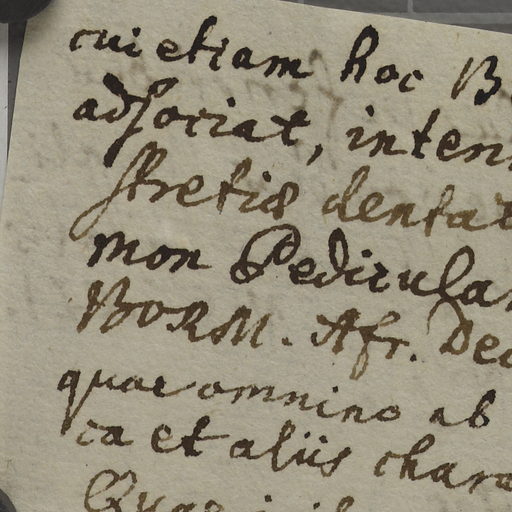 cui etiam hoc B
adsociat, inten
stretiæ dentat
mon Pedicular
BORM. Afr. Dec
quae omnino ab
ca et aliis chara